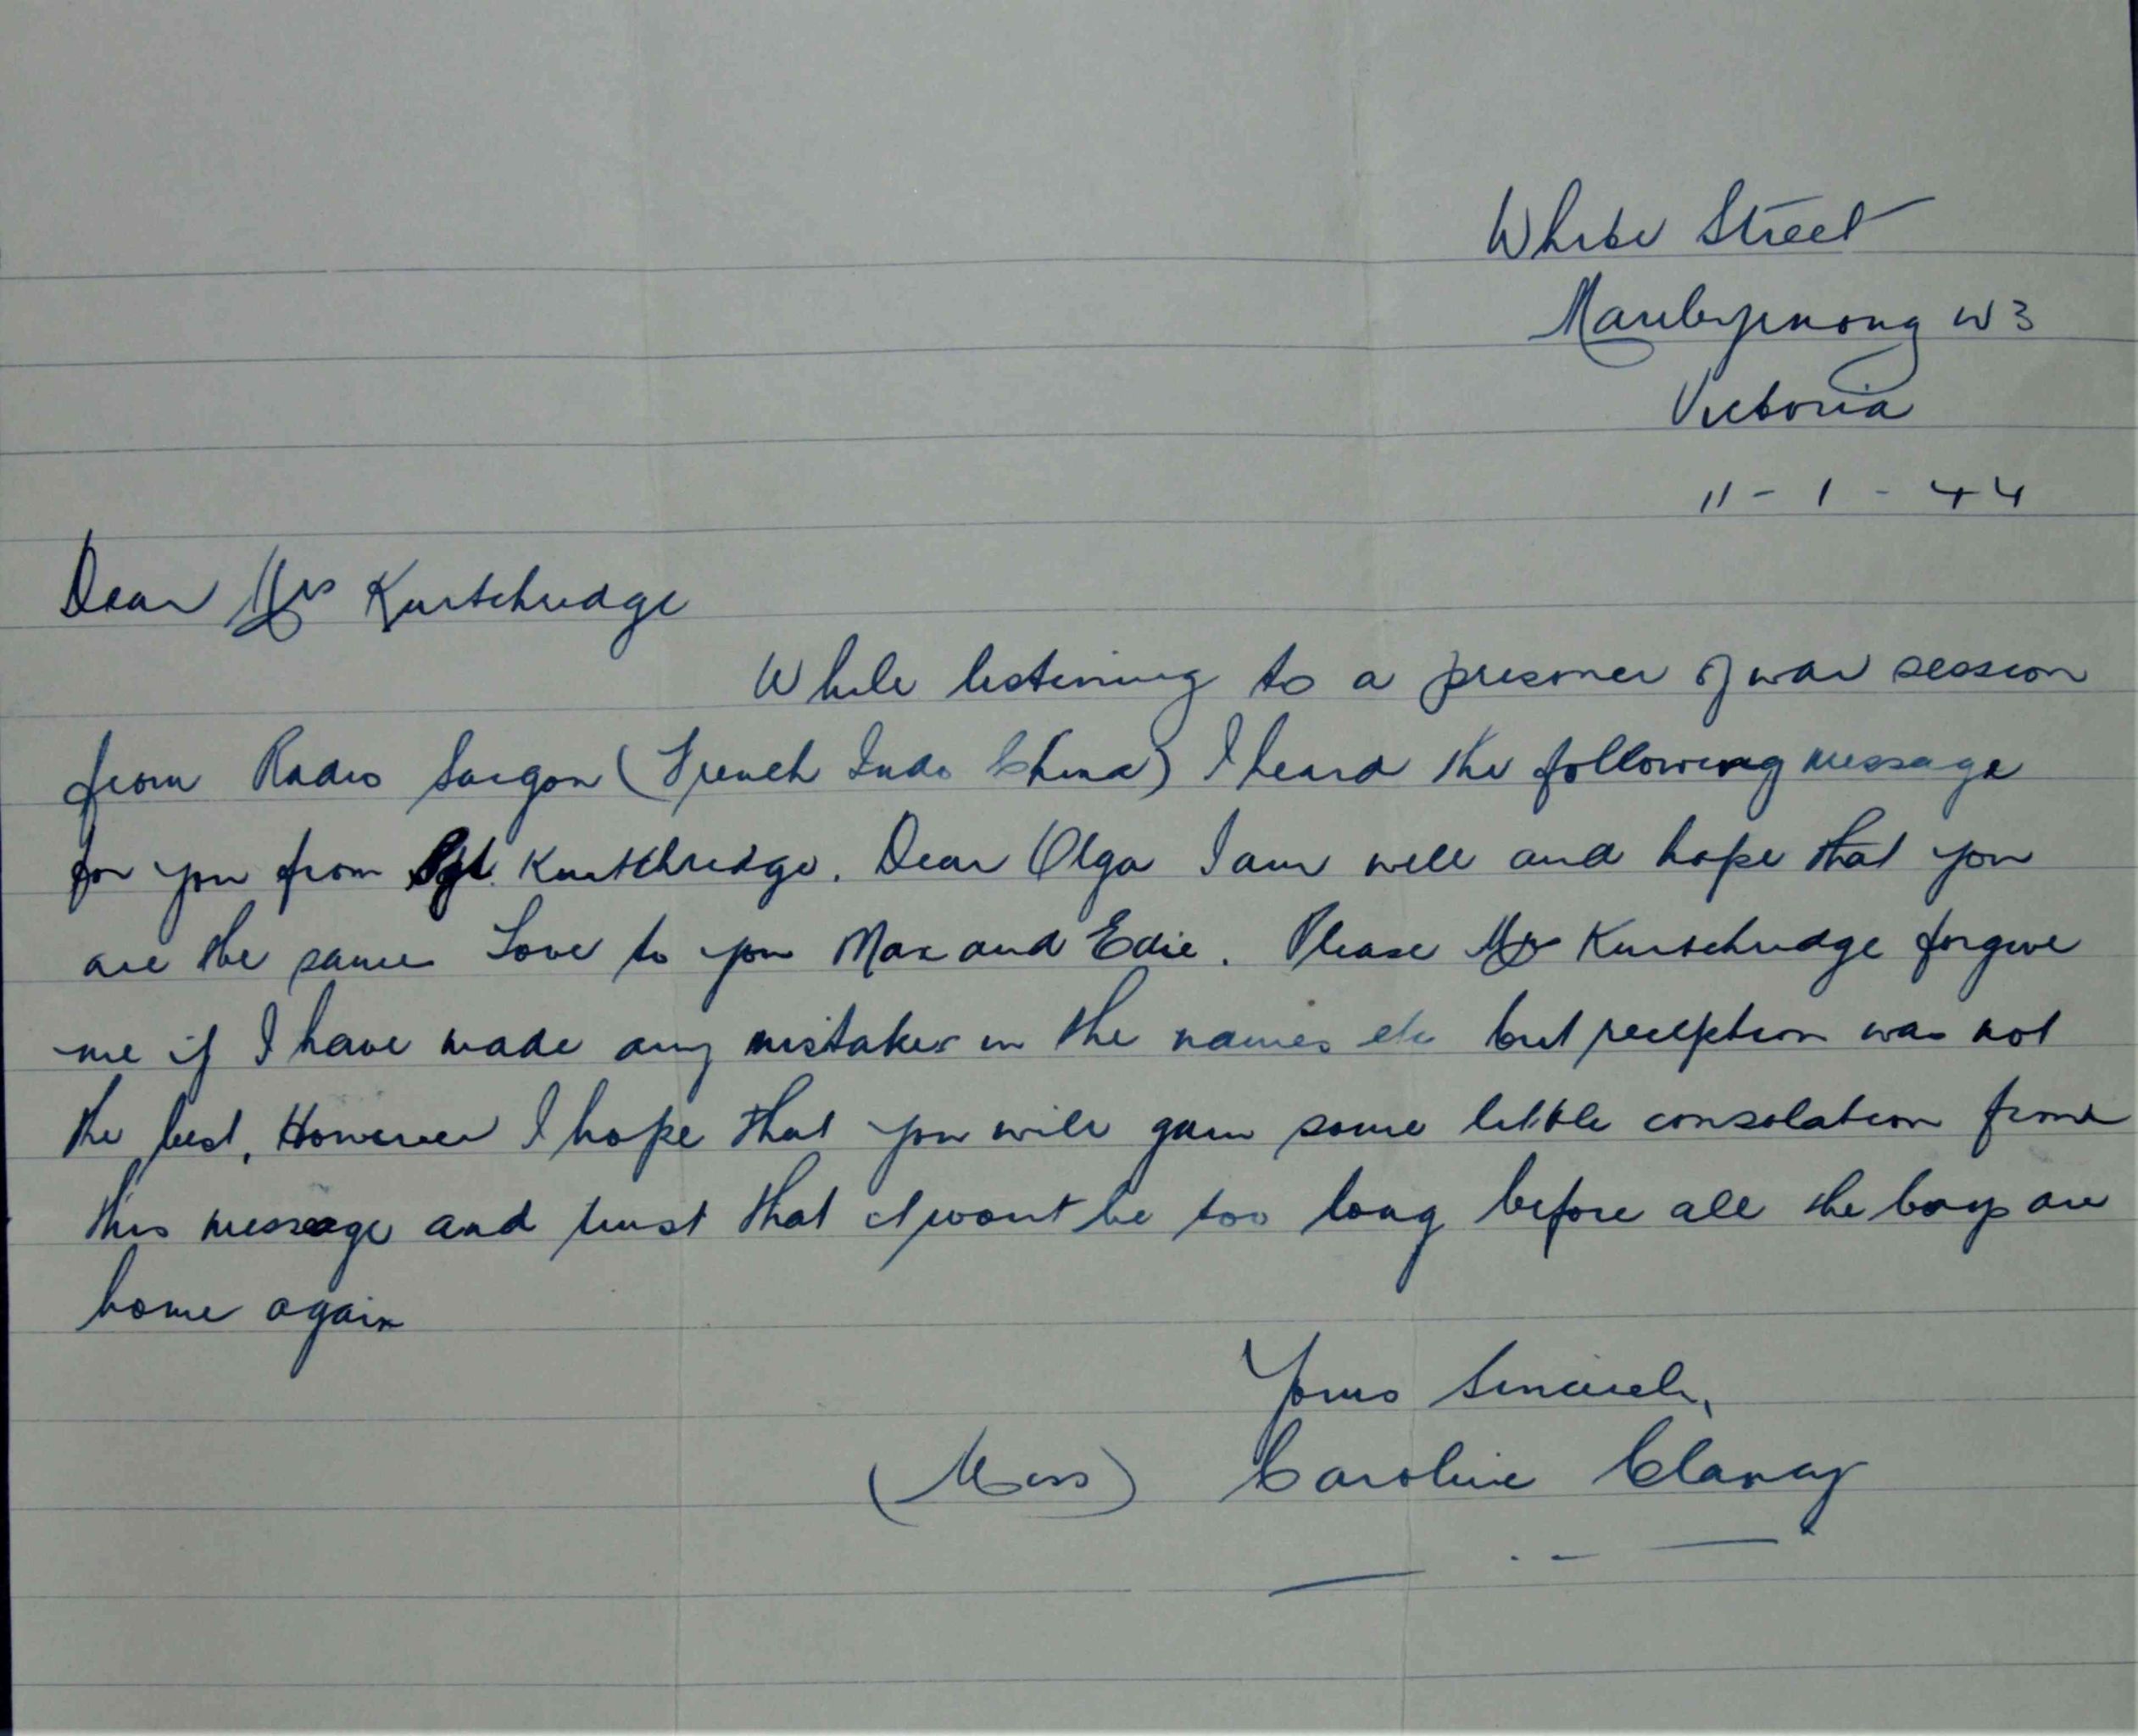 White Street
Maribyrnong W3
Victoria
11 - 1 - 44
Dear Mrs Kurtchudge
While listening to a prisoner of war session
from Radio Saigon (French Indo China) I heard the following message
for you from Sgt. Kurtchudge. Dear Olga I am well and hope that you
are the same Love to you Max and Edie. Please Mrs Kurtchudge forgive
me if I have made any mistakes in the names etc but reception was not
the best, However I hope that you will gain some little consolation from
this message and trust that it wont be too long before all the boys are
home again
Yours Sincerely,
(Miss) Caroline Clancy